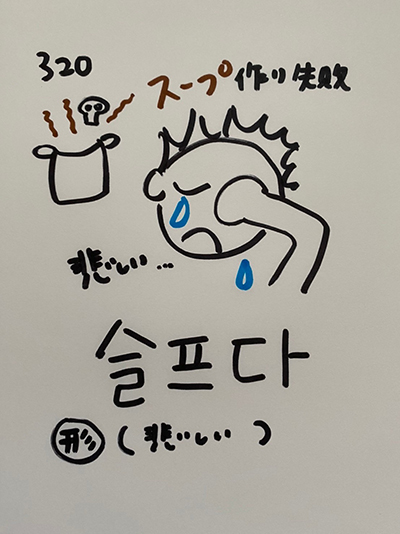 320
スープ作り失敗
悲しい...
슬프다
形 (悲しい )